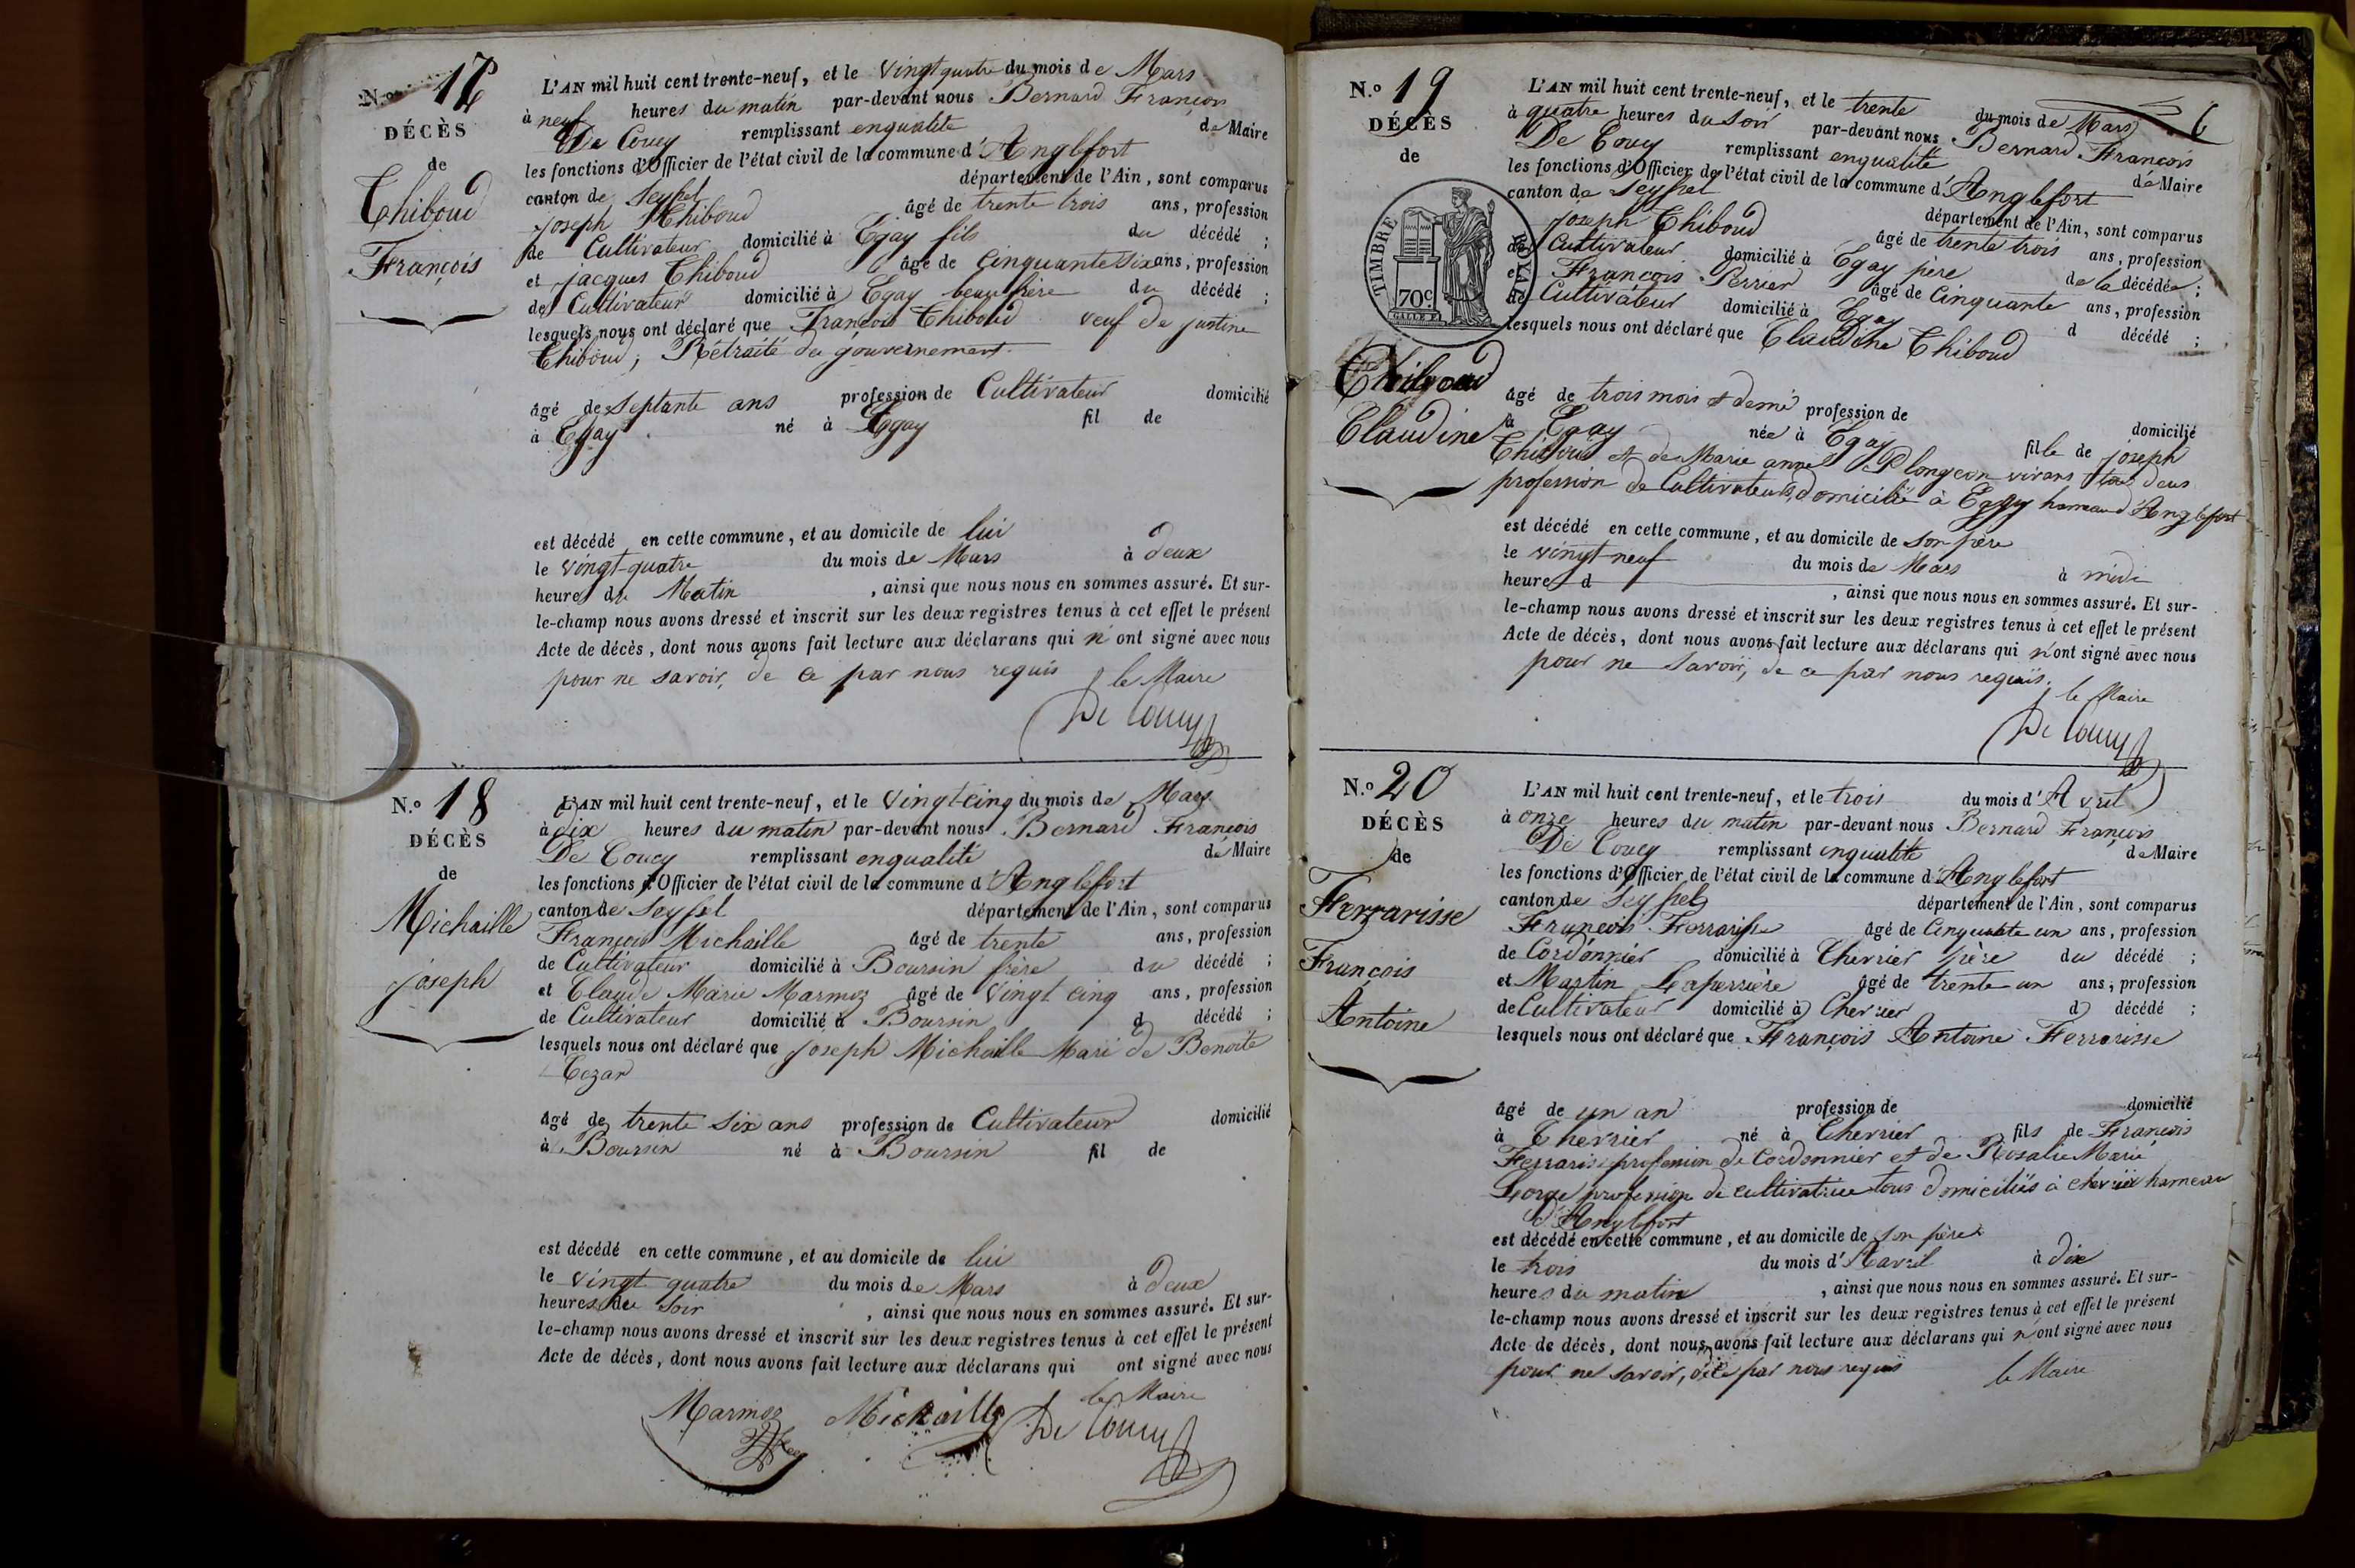 N.º 17
DÉCÈS
de
Thiboud
François
L'AN mil huit cent trente-neuf, et le vingt quatre du mois de Mars
à neuf heures du matin par-devant nous Bernard François
De Coucy remplissant enqualité de Maire
les fonctions d'Officier de l'état civil de la commune d'Anglefort
canton de Seyssel département de l'Ain, sont comparus
joseph Thiboud âgé de trente trois ans, profession
de Cultivateur domicilié à Egay fils du décédé ;
et jacques Thiboud âgé de Cinquante six ans, profession
de Cultivateur domicilié à Egay beau frère du décédé ;
lesquels nous ont déclaré que François Thiboud veuf de justine
Thiboud, Rétraité du gouvernement.
âgé de Septante ans profession de Cultivateur domicilié
à Egay né à Egay fil de
est décédé en cette commune, et au domicile de lui
le vingt-quatre du mois de Mars à deux
heures du Matin , ainsi que nous nous en sommes assuré. Et sur-
le-champ nous avons dressé et inscrit sur les deux registres tenus à cet effet le présent
Acte de décès, dont nous avons fait lecture aux déclarans qui n'ont signé avec nous
pour ne savoir, de ce par nous requis le Maire
De Coucy
N.º 18
DÉCÈS
de
Michaille
joseph
L'AN mil huit cent trente-neuf, et le vingt-cinq du mois de Mars
à dix heures du matin par-devant nous Bernard François
De Coucy remplissant enqualité de Maire
les fonctions d'Officier de l'état civil de la commune d'Anglefort
canton de Seyssel département de l'Ain, sont comparus
François Michaille âgé de trente ans, profession
de Cultivateur domicilié à Boursin frère du décédé ;
et Claude Marie Marmoz âgé de vingt cinq ans, profession
de Cultivateur domicilié à Boursin d décédé ;
lesquels nous ont déclaré que joseph Michaille Mari de Benoite
Cezar
âgé de trente six ans profession de Cultivateur domicilié
à Boursin né à Boursin fil de
est décédé en cette commune, et au domicile de lui
le vingt quatre du mois de Mars à deux
heures du soir , ainsi que nous nous en sommes assuré. Et sur-
le-champ nous avons dressé et inscrit sur les deux registres tenus à cet effet le présent
Acte de décès, dont nous avons fait lecture aux déclarans qui ont signé avec nous
le Maire
Marmoz Michaille De Coucy
6
N.º 19
DÉCÈS
de
TIMBRE ROYAL
70c
Thiboud
Claudine
L'AN mil huit cent trente-neuf, et le trente du mois de Mars
à quatre heures du soir par-devant nous Bernard François
De Coucy remplissant enqualité de Maire
les fonctions d'Officier de l'état civil de la commune d'Anglefort
canton de Seyssel département de l'Ain, sont comparus
joseph Thiboud âgé de trente trois ans, profession
de Cultivateur domicilié à Egay père de la décédée ;
et François Perrier âgé de Cinquante ans, profession
de Cultivateur domicilié à Egay d décédé ;
lesquels nous ont déclaré que Claudine Thiboud
âgé de trois mois & demi profession de domicilié
à Egay née à Egay fille de joseph
Thiboud et de Marie anne Plongeon vivans tous deux
profession de Cultivateurs domicilié à Egay hameau d'Anglefort
est décédé en cette commune, et au domicile de son père
le vingt-neuf du mois de Mars à midi
heure d , ainsi que nous nous en sommes assuré. Et sur-
le-champ nous avons dressé et inscrit sur les deux registres tenus à cet effet le présent
Acte de décès, dont nous avons fait lecture aux déclarans qui n'ont signé avec nous
pour ne savoir, de ce par nous requis. le Maire
De Coucy
N.º 20
DÉCÈS
de
Ferrarisse
François
Antoine
L'AN mil huit cent trente-neuf, et le trois du mois d'Avril
à onze heures du matin par-devant nous Bernard François
De Coucy remplissant enqualité de Maire
les fonctions d'Officier de l'état civil de la commune d'Anglefort
canton de Seyssel département de l'Ain, sont comparus
François Ferrarisse âgé de Cinquante un ans, profession
de Cordonnier domicilié à Chevrier père du décédé ;
et Martin Laperrière âgé de trente un ans, profession
de Cultivateur domicilié à Chevrier d décédé ;
lesquels nous ont déclaré que François Antoine Ferrarisse
âgé de un an profession de domicilié
à Chevrier né à Chevrier fils de François
Ferrarise profession de Cordonnier et de Rosalie Marie
profession de cultivatrice tous domiciliés à chevrier hameau
d'Anglefort
est décédé en cette commune, et au domicile de son père
le trois du mois d'Aavril à dix
heures du matin , ainsi que nous nous en sommes assuré. Et sur-
le-champ nous avons dressé et inscrit sur les deux registres tenus à cet effet le présent
Acte de décès, dont nous avons fait lecture aux déclarans qui n'ont signé avec nous
pour ne savoir, de ce par nous requis le Maire